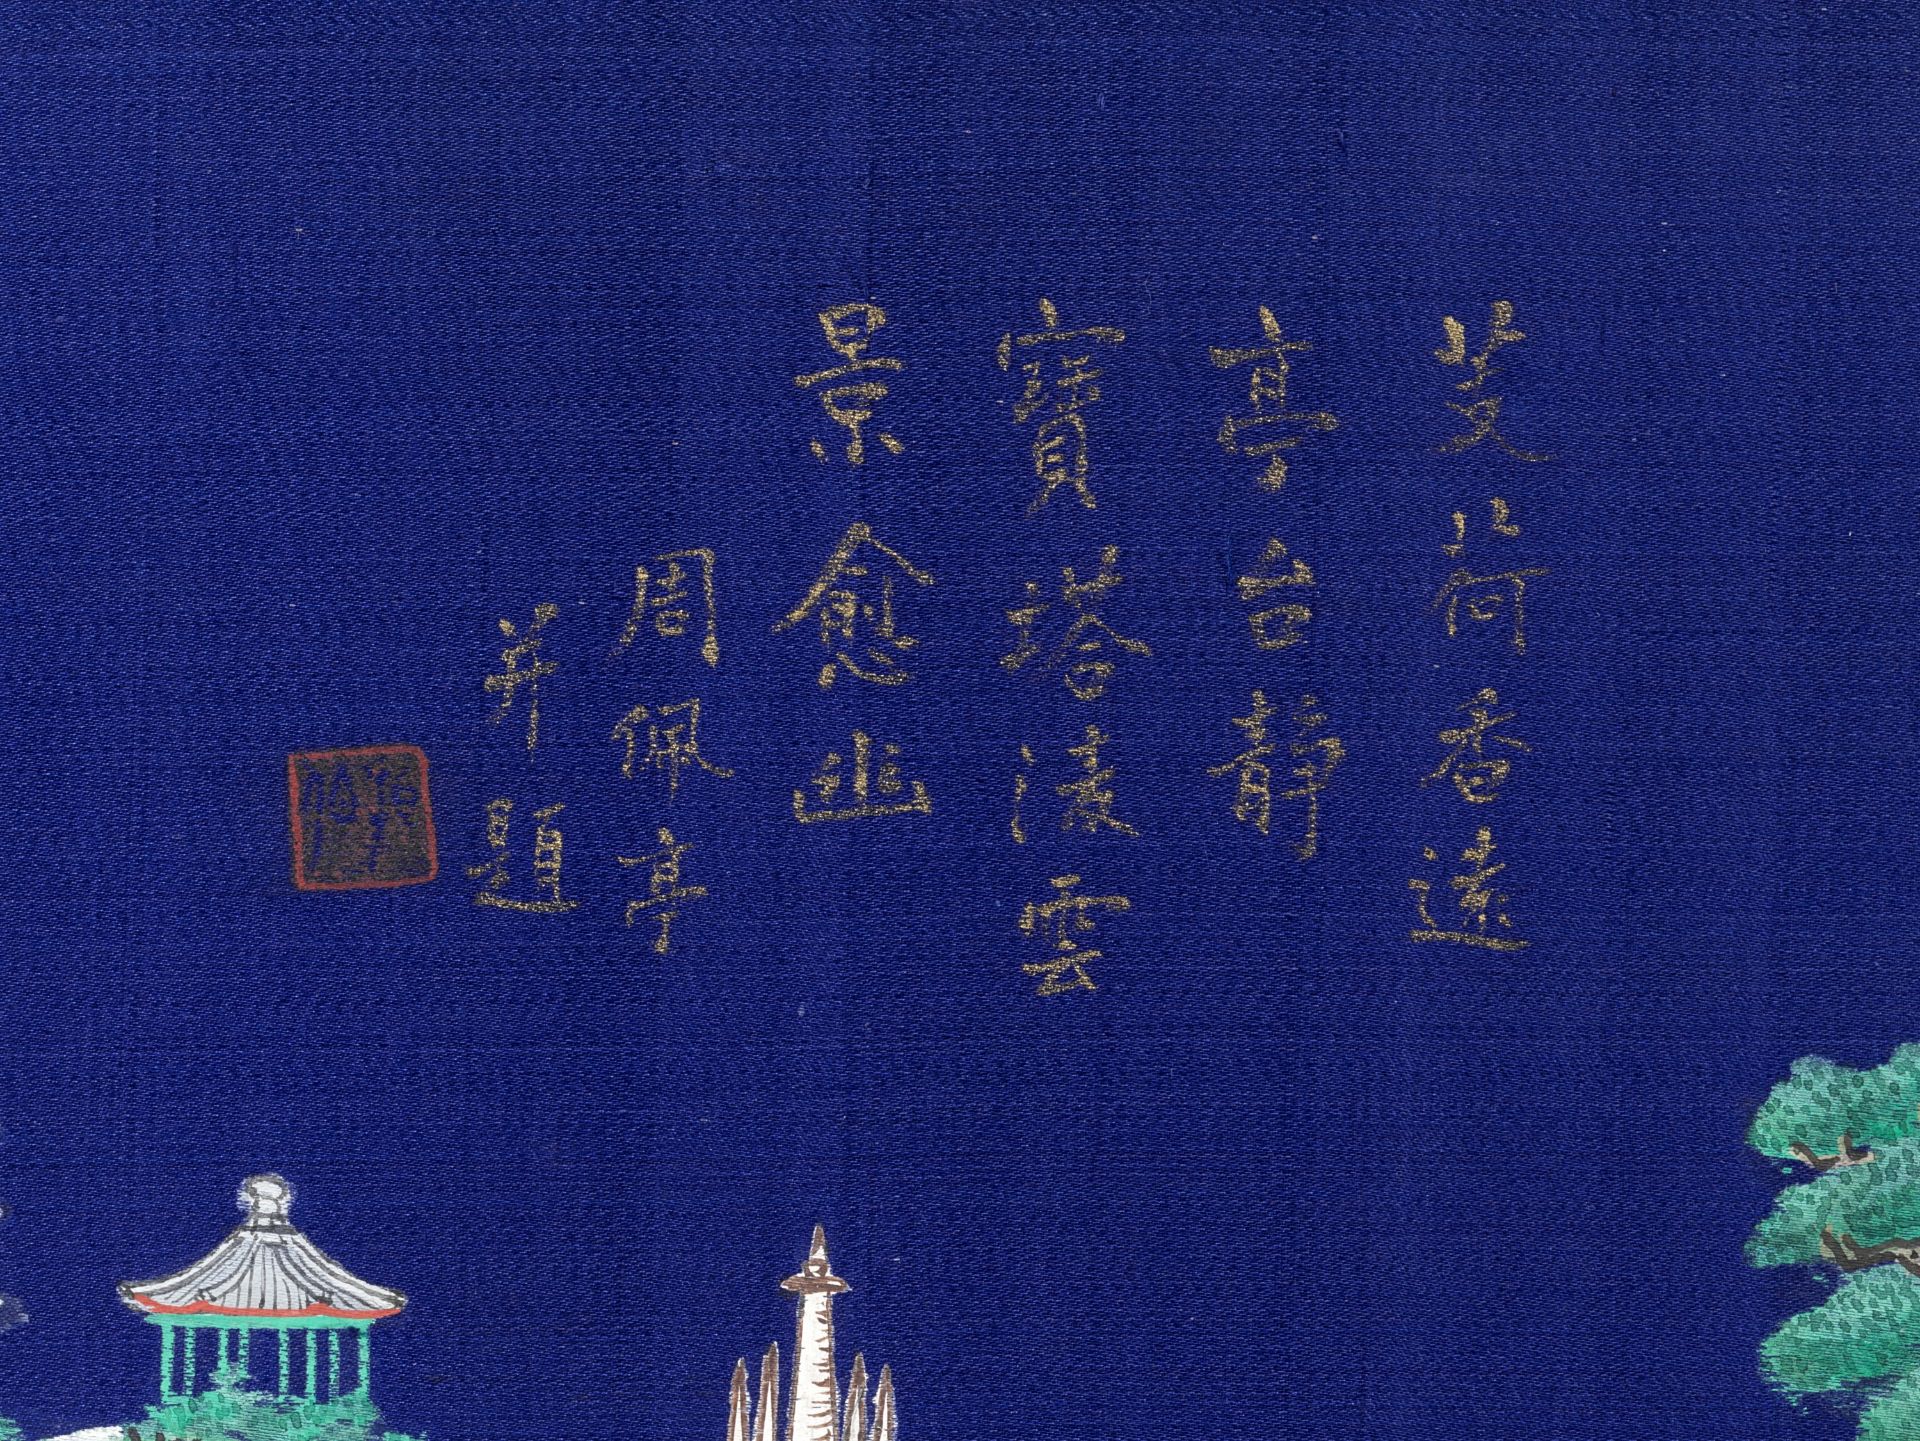 芰荷香遠
亭台靜
寶塔凌雲
景愈幽
周佩亭
并題